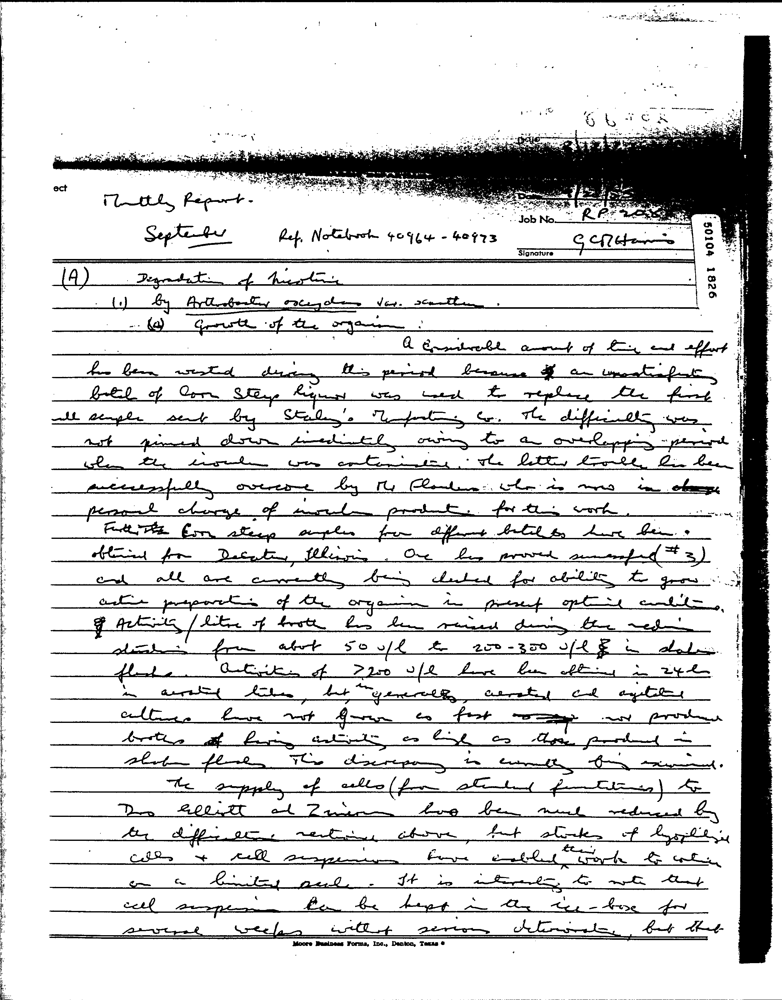 ect
Monthly Report.
Job No. RP
September Ref. Notebook 40964 - 40973
Signature GCR Harris
50104 1826
(A) Degradation of Nicotine
(1.) by Arthrobacter oxydans var.
(a) Growth of the organism :
A considerable amount of time and effort
has been wasted during this period because an unsatisfactory
batch of Corn Steep Liquor was used to replace the first
sample sent by Staley's Manufacturing Co. The difficulty was
not pinned down immediately owing to an overlapping period
when the inoculum was contaminated. The latter trouble has been
successfully overcome by Mr Flanders who is now in
personal charge of inoculum production for this work.
Further Corn steep samples from different batches have been
obtained from Decatur, Illinois. One has proved successful (#3)
and all are currently being checked for ability to grow
active preparations of the organism in present optimal conditions.
Activity/litre of broth has been raised during the medium
studies from about 50 u/l to 200-300 u/l in shake
flasks. Activities of >200 u/l have been obtained in 24 hrs
in aerated tubes, but, in general, aerated and agitated
cultures have not grown as fast nor produced
broths having activity as high as those produced in
shake flasks. This discrepancy is currently being examined.
The supply of cells (from standard fermentations) to
Drs Elliott and has been much reduced by
the difficulties mentioned above, but stocks of lyophilized
cells + cell suspensions have enabled their work to continue
on a limited scale. It is interesting to note that
cell suspension can be kept in the ice-box for
several weeks without serious deterioration, but that
Moore Business Forms, Inc., Denton, Texas